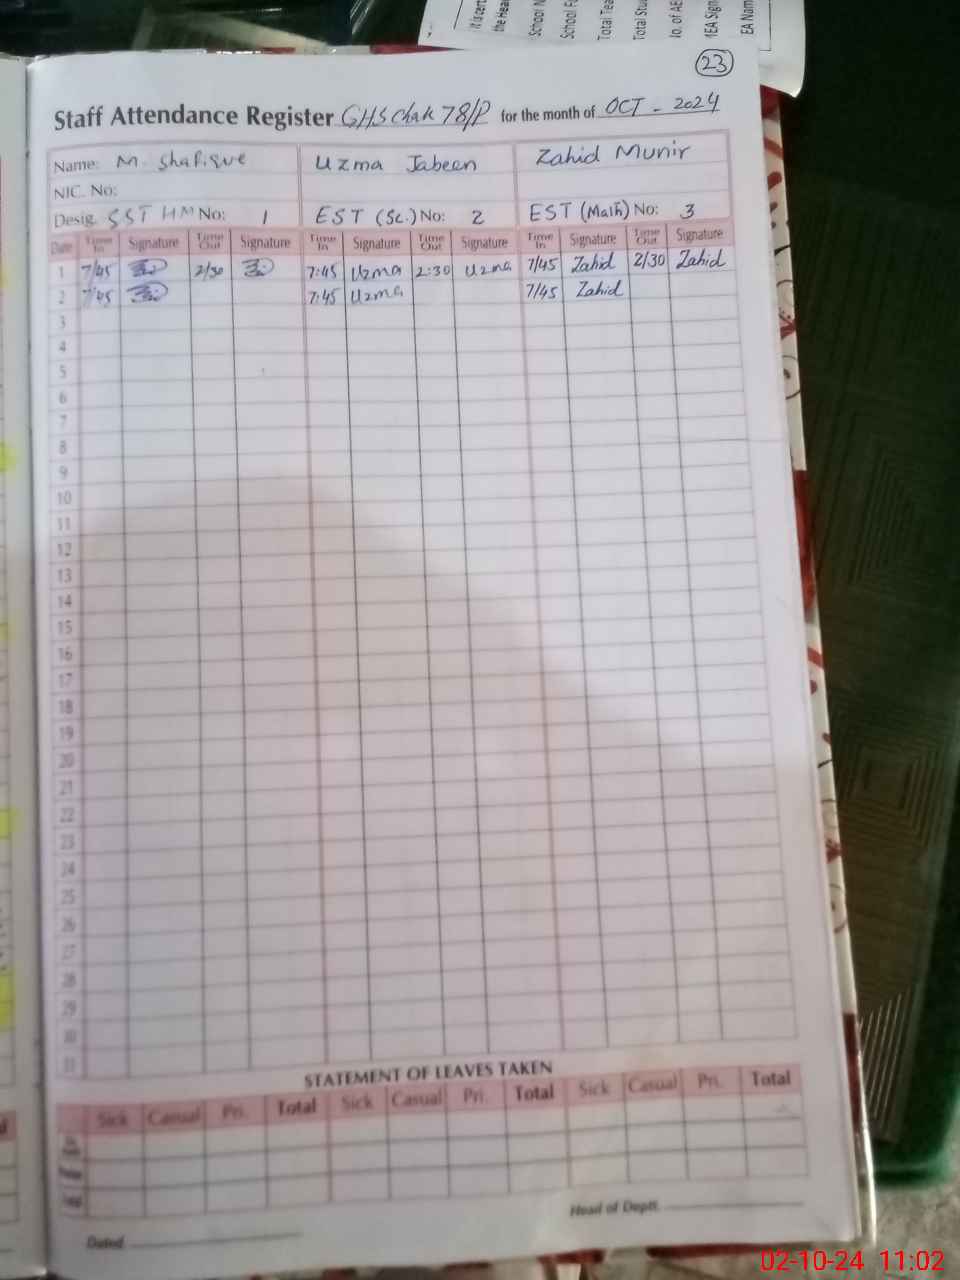 it is cert
the Hea
School N
School F
Total Tea
Total Stu
No. of AE
MEA Sign
EA Nam
23
Staff Attendance Register GHS Chak 78/P for the month of OCT - 2024
Name: M. Shafique Uzma Jabeen Zahid Munir
NIC. No:
Desig. SST HM No: 1 EST (Sc.) No: 2 EST (Math) No: 3
Date Time In Signature Time Out Signature Time In Signature Time Out Signature Time In Signature Time Out Signature
1 7/45 2/30 7:45 Uzma 2:30 Uzma 7/45 Zahid 2/30 Zahid
2 7/45 7:45 Uzma 7/45 Zahid
3
4
5
6
7
8
9
10
11
12
13
14
15
16
17
18
19
20
21
22
23
24
25
26
27
28
29
30
31
STATEMENT OF LEAVES TAKEN
Sick Casual Pri. Total Sick Casual Pri. Total Sick Casual Pri. Total
Total
Head of Deptt.
Dated
02-10-24 11:02